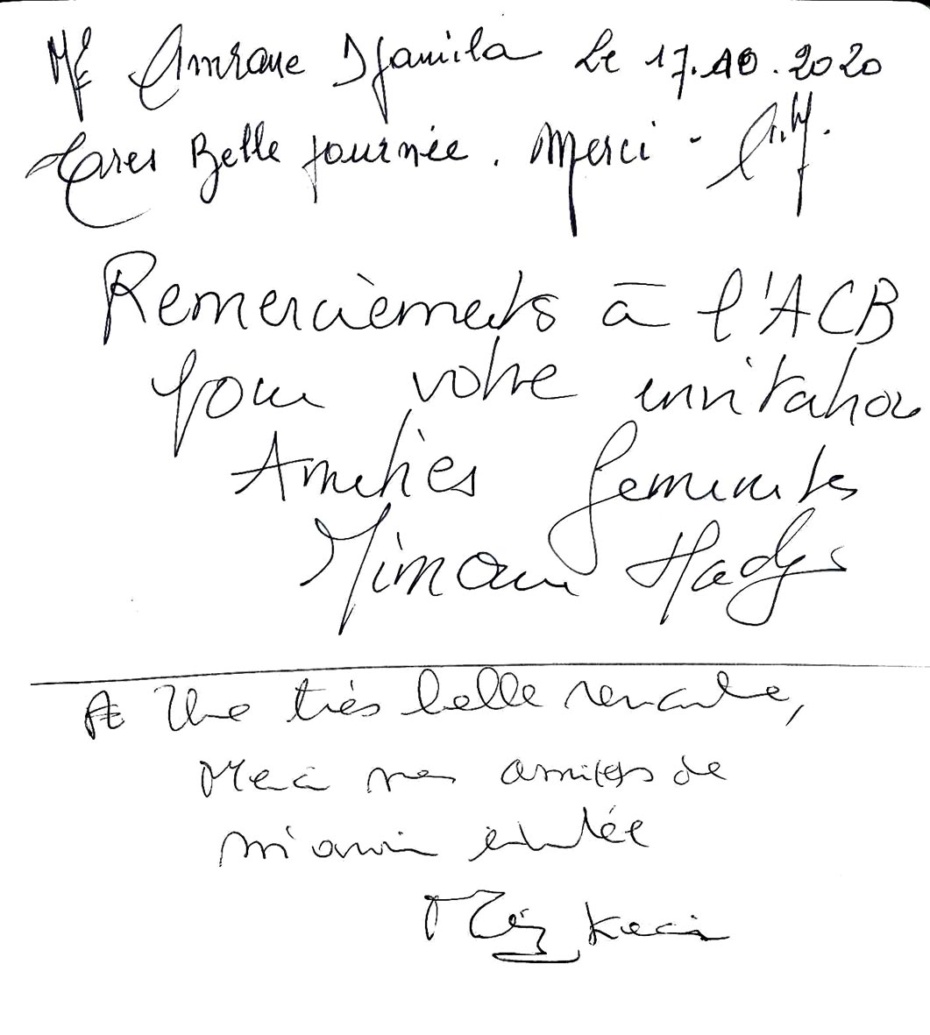 Me Amrane Djamila Le 17.10.2020
Tares Belle journée. Merci - A.Dj.
Remerciements à l'ACB
pour votre invitation
Amitiés féministes
Mimouni Hadja
Une très belle rencontre,
Merci mes ami(e)s de
m'avoir invitée